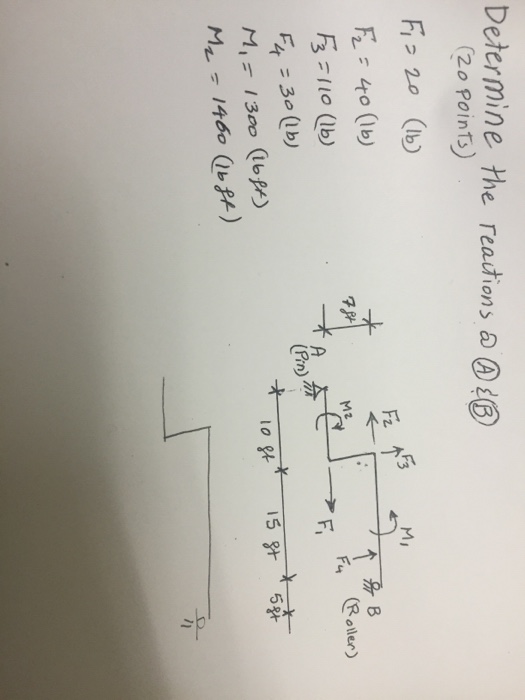 Determine the reactions @ Ⓐ & Ⓑ
(20 points)
F₁ = 20 (lb)
F₂ = 40 (lb)
F₃ = 110 (lb)
F₄ = 30 (lb)
M₁ = 1300 (lb ft)
M₂ = 1460 (lb ft)
7 ft
A
(Pin)
M₂
F₂
F₃
F₁
M₁
F₄
B
(Roller)
10 ft
15 ft
5 ft